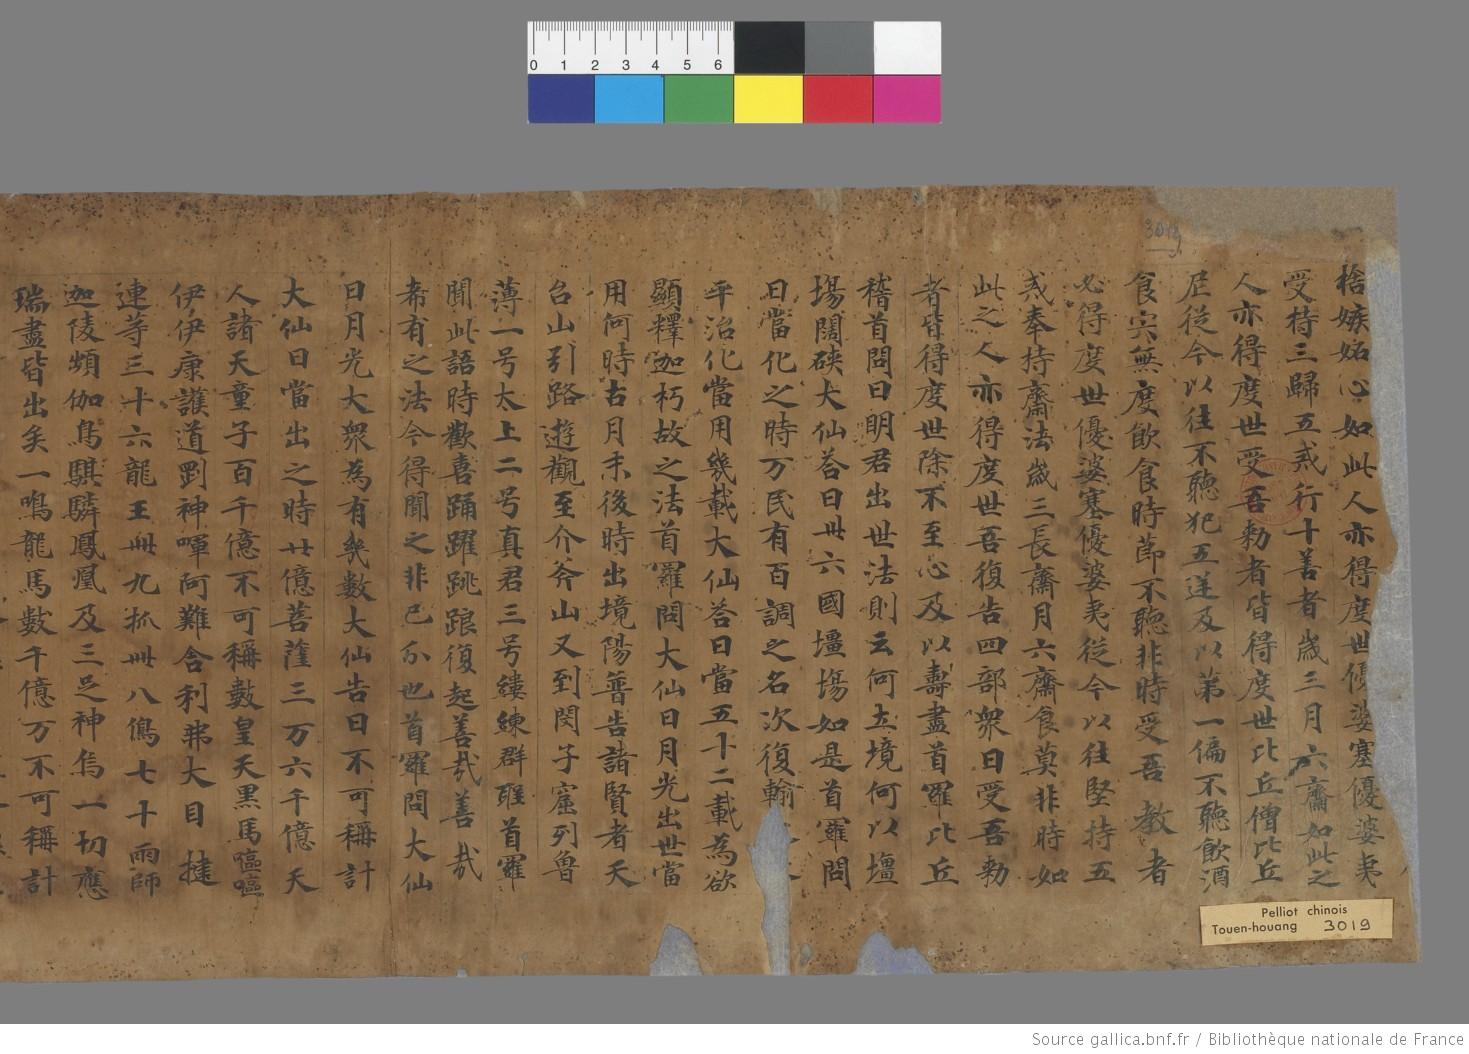 0 1 2 3 4 5 6
3019
捨嫉妬心如此人亦得度世優婆塞優婆夷
受持三歸五戒行十善者歲三月六齋如此之
人亦得度世受吾勑者皆得度世比丘僧比丘
尼從今以往不聽犯五逆及以第一偏不聽飲酒
食宍無度飲食時節不聽非時受吾教者
必得度世優婆塞優婆夷從今以往堅持五
戒奉持齋法歲三長齋月六齋食莫非時如
此之人亦得度世吾復告四部衆曰受吾勑
者皆得度世除不至心及以壽盡首羅比丘
稽首問曰明君出世法則云何土境何以壇
塲闊硤大仙荅曰卅六國壃塲如是首羅問
曰當化之時万民有百調之名次復輸
平治化當用幾載大仙荅曰當五十二載為欲
顯釋迦朽故之法首羅問大仙曰月光出世當
用何時古月末後時出境陽普告諸賢者天
台山引路遊觀至介斧山又到閔子窟列魯
薄一号太上二号真君三号縷練群 首羅
聞此語時歡喜踊躍跳踉復起善哉善哉
希有之法今得聞之非已尒也首羅問大仙
日月光大衆為有幾數大仙告曰不可稱計
大仙曰當出之時廿億菩薩三万六千億天
人諸天童子百千億不可稱數皇天黑馬嘔嘔
伊伊康護道罰神暉阿難舍利弗大目揵
連等三十六龍王卌九 卌八鵂七十雨師
迦陵頻伽鳥騏驎鳳凰及三足神烏一切應
瑞盡皆出矣一鳴龍馬數千億万不可稱計
Pelliot chinois
Touen-houang 3019
Source gallica.bnf.fr / Bibliothèque nationale de France